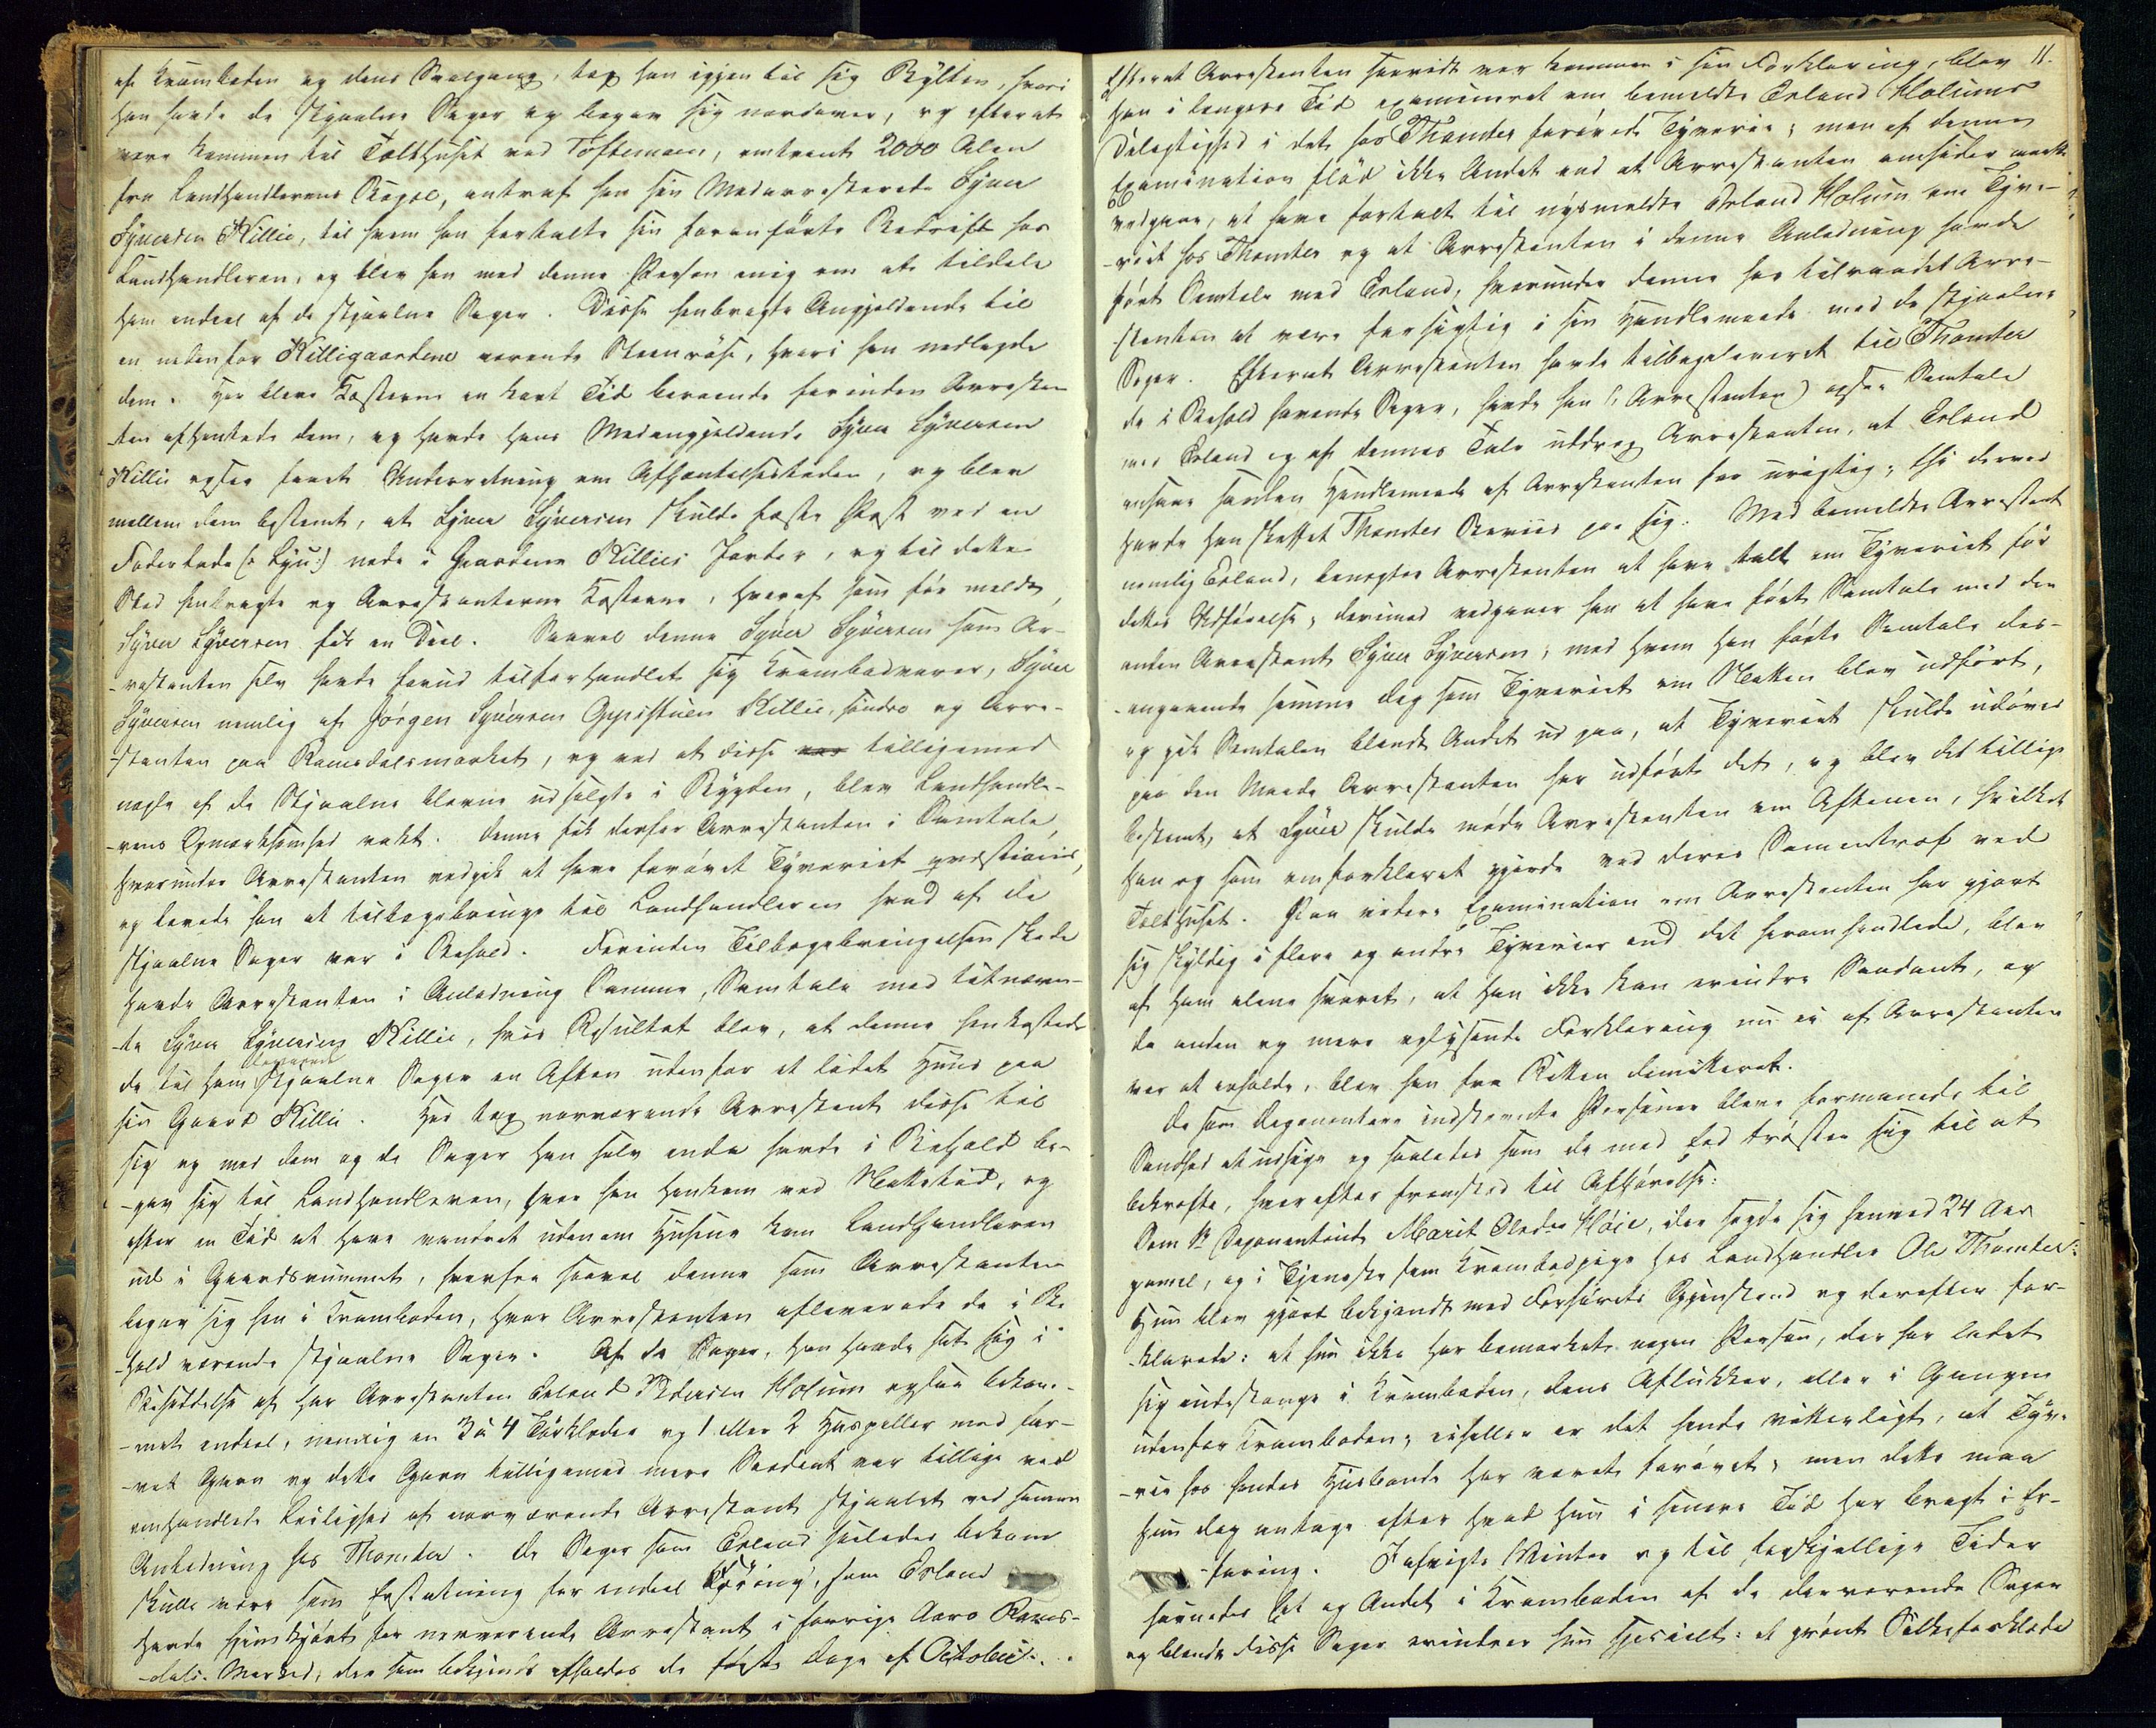 af Kramboden og dens Svalgang, tog han igjen til sig Bylten, hvori
han havde de stjaalne Sager og begav sig nordover, og efterat
være kommen til Tolthuset ved Toftemoen, omtrent 2000 Alen
fra Landhandlerens Bopæl, antraf han sin Medarresterede Syver
Syversen Killie, til hvem han fortalte sin foranførte Bedrift hos
Landhandleren, og blev han med denne Person enig om at tildele
ham endeel af de stjaalne Sager. Disse henbragte Angjeldende til
en nedenfor Killigaardene værende Steenrøse, hvori han nedlagde
dem. Her bleve Kosterne en kort Tid beroende forinden Arrestan
-ten afhentede dem, og havde hans Medangjeldende Syver Syversen
Killie ogsaa faaet Underretning om Afhentelsestiden, og blev
mellem dem bestemt, at Syver Syversen skulde faste Post ved en
Foderlade (: Lyu:) nede i Gaardene Killies Jorder, og til dette
Sted henbragte og Arrestanterne Kosterne, hvoraf som før meldt,
Syver Syversen fik en Deel. Saavel denne Syver Syversen som Ar-
-restanten selv havde forud tilforhandlet sig Krambodvarer, Syver
Syversen nemlig af Jørgen Syversen Oppistuen Killie, søndre og Arre-
-stanten paa Romsdalsmarket, og ved at disse tilligemed
nogle af de Stjaalne bleve udsolgte i Bygden, blev Landhandle-
-rens Opmærksomhed vakt. Denne fik derfor Arrestanten i Samtale,
hvorunder Arrestanten vedgik at have forøvet Tyveriet qvæstionis,
og lovede han at tilbagebringe til Landhandleren hvad af de
stjaalne Sager var i Behold. Forinden Tilbagebringelsen skede
havde Arrestanten i Anledning Samme, Samtale med titnævn-
-te Syver Syversen Killie, hvis Resultat blev, at denne henkastede
de til ham leverede stjaalne Sager en Aften udenfor et lidet Huus paa
sin Gaard Killie. Her tog nærværende Arrestant disse til
sig og med dem og de Sager han selv endu havde i Behold be-
-gav sig til Landhandleren, hvor han henkom ved Nattetid, og
efter en Tid at have vandret udenom Husene kom Landhandleren
ud i Gaardsrummet, hvorfra saavel denne som Arrestanten
begav sig hen i Kramboden, hvor Arrestanten afleverede de i Be
-hold værende stjaalne Sager. Af de Sager, han havde sat sig i
Besiddelse af har Arrestanten Erland Pedersen Holum ogsaa bekom-
-met endeel, nemlig en 3 à 4 Tørklæder og 1 eller 2 Haspeller med far-
-vet Garn og dette Garn tilligemed mere Saadant var tillige ved
omhandlede Leilighed af nærværende Arrestant stjaalet ved samme
Anledning hos Thomter. De Sager som Erland saaledes bekom
skulle være som Erstatning for endeel Føring, som Erland
havde hjemkjørt for nærværende Arrestant i forrige Aars Roms-
-dals-Marked, der som bekjendt afholdes de første Dage af October.

11.
Efterat Arrestanten saavidt var kommen i sin Forklaring, blev
han i længere Tid examineret om bemeldte Erland Holums
Delagtighed i det hos Thomter forøvede Tyverie; men af denne
Examination flød ikke Andet end at Arrestanten omsider maatte
vedgaae, at have fortalt til nysmeldte Erland Holum om Tyve-
-riet hos Thomter og at Arrestanten i denne Anledning havde
ført Samtale med Erland, hvorunder denne har tilraadet Arre-
stanten at være forsigtig i sin Handlemaade med de stjaalne
Sager. Efterat Arrestanten havde tilbageleveret til Thomter
de i Behold havende Sager, havde han (: Arrestanten) ogsaa Samtale
med Erland og af dennes Tale uddrog Arrestanten, at Erland
ansaae saadan Handlemaade af Arrestanten for urigtig, thi derved
havde han skaffet Thomter Beviis paa sig. Med bemeldte Arrestant
nemlig Erland, benegter Arrestanten at have talt om Tyveriet før
dettes Udførelse; derimod vedgaaer han at have ført Samtale med den
anden Arrestant Syver Syversen, med hvem han førte Samtale des-
-angaaende samme Dag som Tyveriet om Natten blev udført,
og gik Samtalen blandt Andet ud paa, at Tyveriet skulde udøves
paa den Maade Arrestanten har udført det, og blev det tillige
bestemt, at Syver skulde møde Arrestanten om Aftenen, hvilket
han og som omforklaret gjorde ved deres Sammentræf ved
Tolthuset. Paa videre Examination om Arrestanten har gjort
sig skyldig i flere og andre Tyverier end det heromhandlede, blev
af ham alene svaret, at han ikke kan erindre Saadant, og
da anden og mere oplysende Forklaring nu ei af Arrestanten
var at erholde, blev han fra Retten dimitteret.
De som Deponentere indstevnte Personer bleve formanede til
Sandhed at udsige og saaledes som de med Eed trøster sig til at
bekræfte, hvorefter fremstod til Afhørelse:
Som 1te Deponentinde Marit Olsdr Høie, der sagde sig henved 24 Aar
gammel, og i Tjeneste som Krambodpige hos Landhandler Ole Thomter.
Hun blev gjort bekjendt med Forhørets Gjenstand og derefter for-
-klarede: at hun ikke har bemærket nogen Person, der har ladet
sig indestænge i Kramboden, dens Aflukker, eller i Gangen
udenfor Kramboden; eiheller er det hende vitterligt, at Tyve-
-rie hos hendes Huusbonde har været forøvet; men dette maa
hun dog antage efter hvad hun i senere Tid har bragt i Er-
-faring. Ifvigte Vinter og til forskjellige Tider
savnedes Eet og Andet i Kramboden af de derværende Sager
og blandt disse Sager erindrer hun specielt: et grønt Silketørklæde